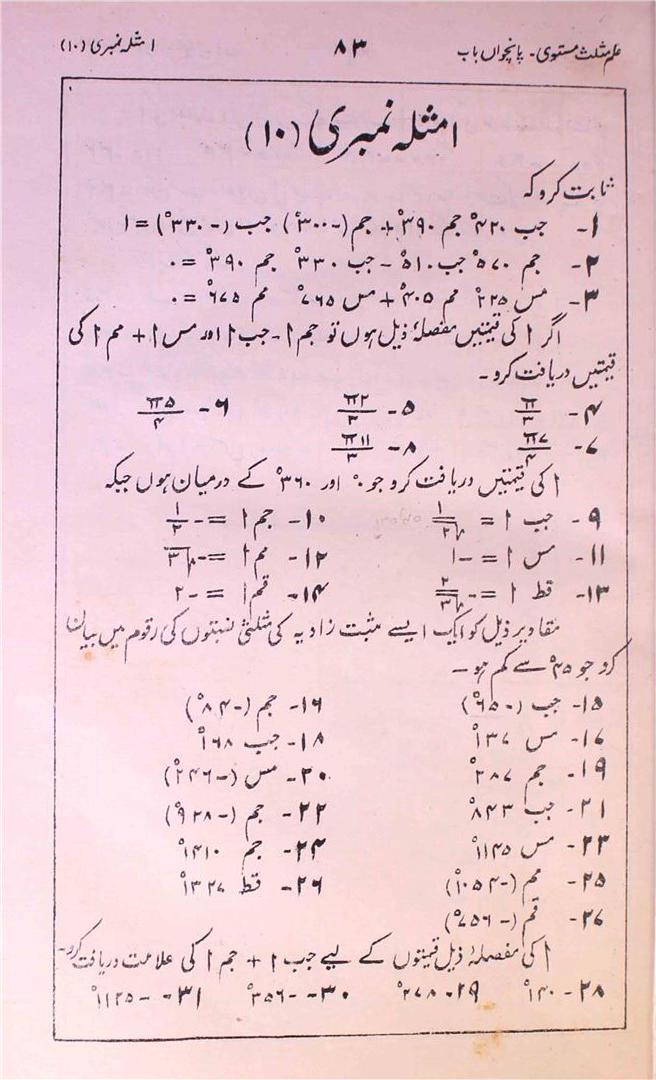 علم مثلث مستوی۔ پانچواں باب ۸۳ امثلہ نمبری (۱۰)
امثلہ نمبری (۱۰)
ثابت کرو کہ
۱- جب ۴۲۰° جم ۳۹۰° + جم (-۳۰۰°) جب (-۳۳۰°) = ۱
۲- جم ۵۷۰° جب ۵۱۰° - جب ۳۳۰° جم ۳۹۰° = ۰
۳- مس ۲۲۵° مم ۴۰۵° + مس ۷۶۵° مم ۶۷۵° = ۰
اگر ا کی قیمتیں مفصلۂ ذیل ہوں تو جم ا - جب ا اور مس ا + مم ا کی
قیمتیں دریافت کرو۔
۴- π/۳ ۵- ۲π/۳ ۶- ۵π/۴
۷- ۷π/۴ ۸- ۱۱π/۳
ا کی قیمتیں دریافت کرو جو ۰° اور ۳۶۰° کے درمیان ہوں جبکہ
۹- جب ا = ۱/√۲ ۱۰- جم ا = -۱/۲
۱۱- مس ا = -۱ ۱۲- مم ا = -√۳
۱۳- قط ا = -۲/√۳ ۱۴- قم ا = -۲
مقادیر ذیل کو ایک ایسے مثبت زاویہ کی مثلثی نسبتوں کی رقوم میں بیان
کرو جو ۴۵° سے کم ہو۔
۱۵- جب (-۶۵°) ۱۶- جم (-۸۴°)
۱۷- مس ۱۳۷° ۱۸- جب ۱۶۸°
۱۹- جم ۲۸۷° ۲۰- مس (-۲۴۶°)
۲۱- جب ۸۴۳° ۲۲- جم (-۹۲۸°)
۲۳- مس ۱۱۴۵° ۲۴- جم ۱۴۱۰°
۲۵- مم (-۱۰۵۴°) ۲۶- قط ۱۳۲۷°
۲۷- قم (-۷۵۶°)
ا کی مفصلۂ ذیل قیمتوں کے لیے جب ا + جم ا کی علامت دریافت کرو۔
۲۸- ۱۴۰° ۲۹- ۲۷۸° ۳۰- -۳۵۶° ۳۱- -۱۱۲۵°